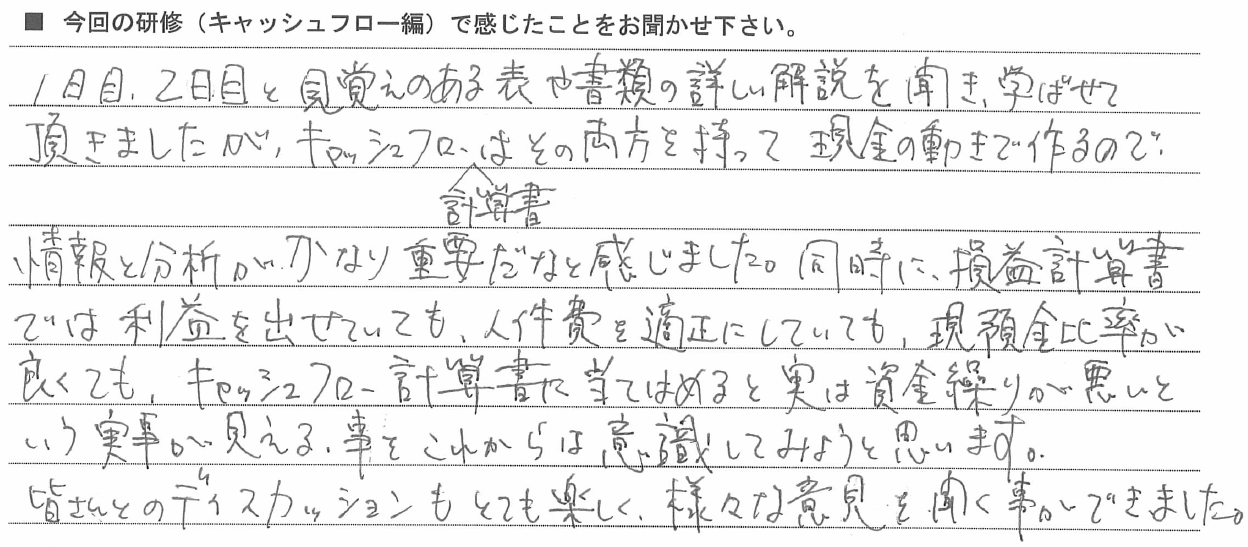 ■ 今回の研修（キャッシュフロー編）で感じたことをお聞かせ下さい。
1日目、2日目と見覚えのある表や書類の詳しい解説を聞き、学ばせて
頂きましたが、キャッシュフローはその両方を持って現金の動きで作るので、
計算書
情報と分析がかなり重要だなと感じました。同時に、損益計算書
では利益を出せていても、人件費を適正にしていても、現預金比率が
良くても、キャッシュフロー計算書に当てはめると実は資金繰りが悪いと
いう実事が見える、事をこれからは意識してみようと思います。
皆さんとのディスカッションもとても楽しく、様々な意見を聞く事ができました。